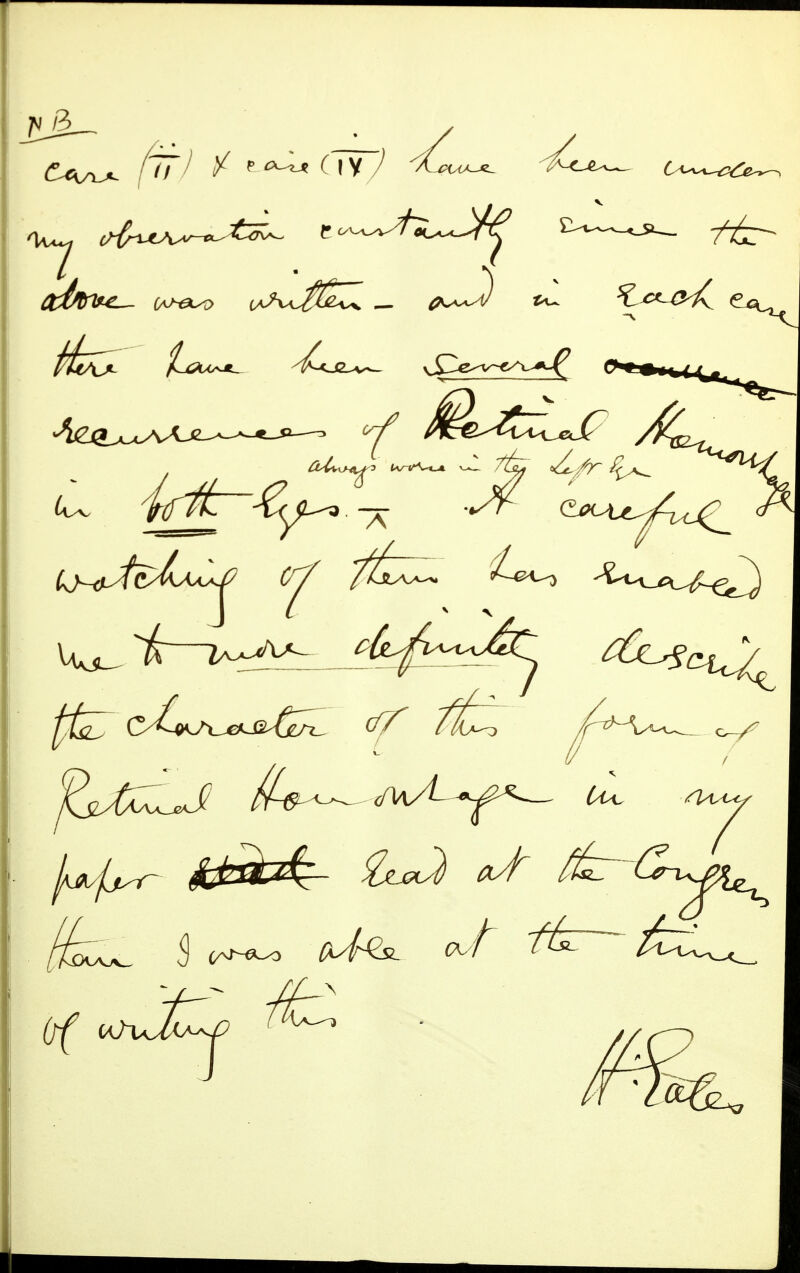 NB
Case (ii) & case (iv) have been under
my observation constantly since the
above was written – and in Each case
there have been several occurrence
recurrences of Retinal Hemorrhage
always worse in the Left Eye
in both Eyes. – A careful
watching of them has Enabled
me to more definitely describe
the character of this form of
Retinal Hemorrhage in my
paper read at the Congress
than I was able at the time
of writing this
H. Eales